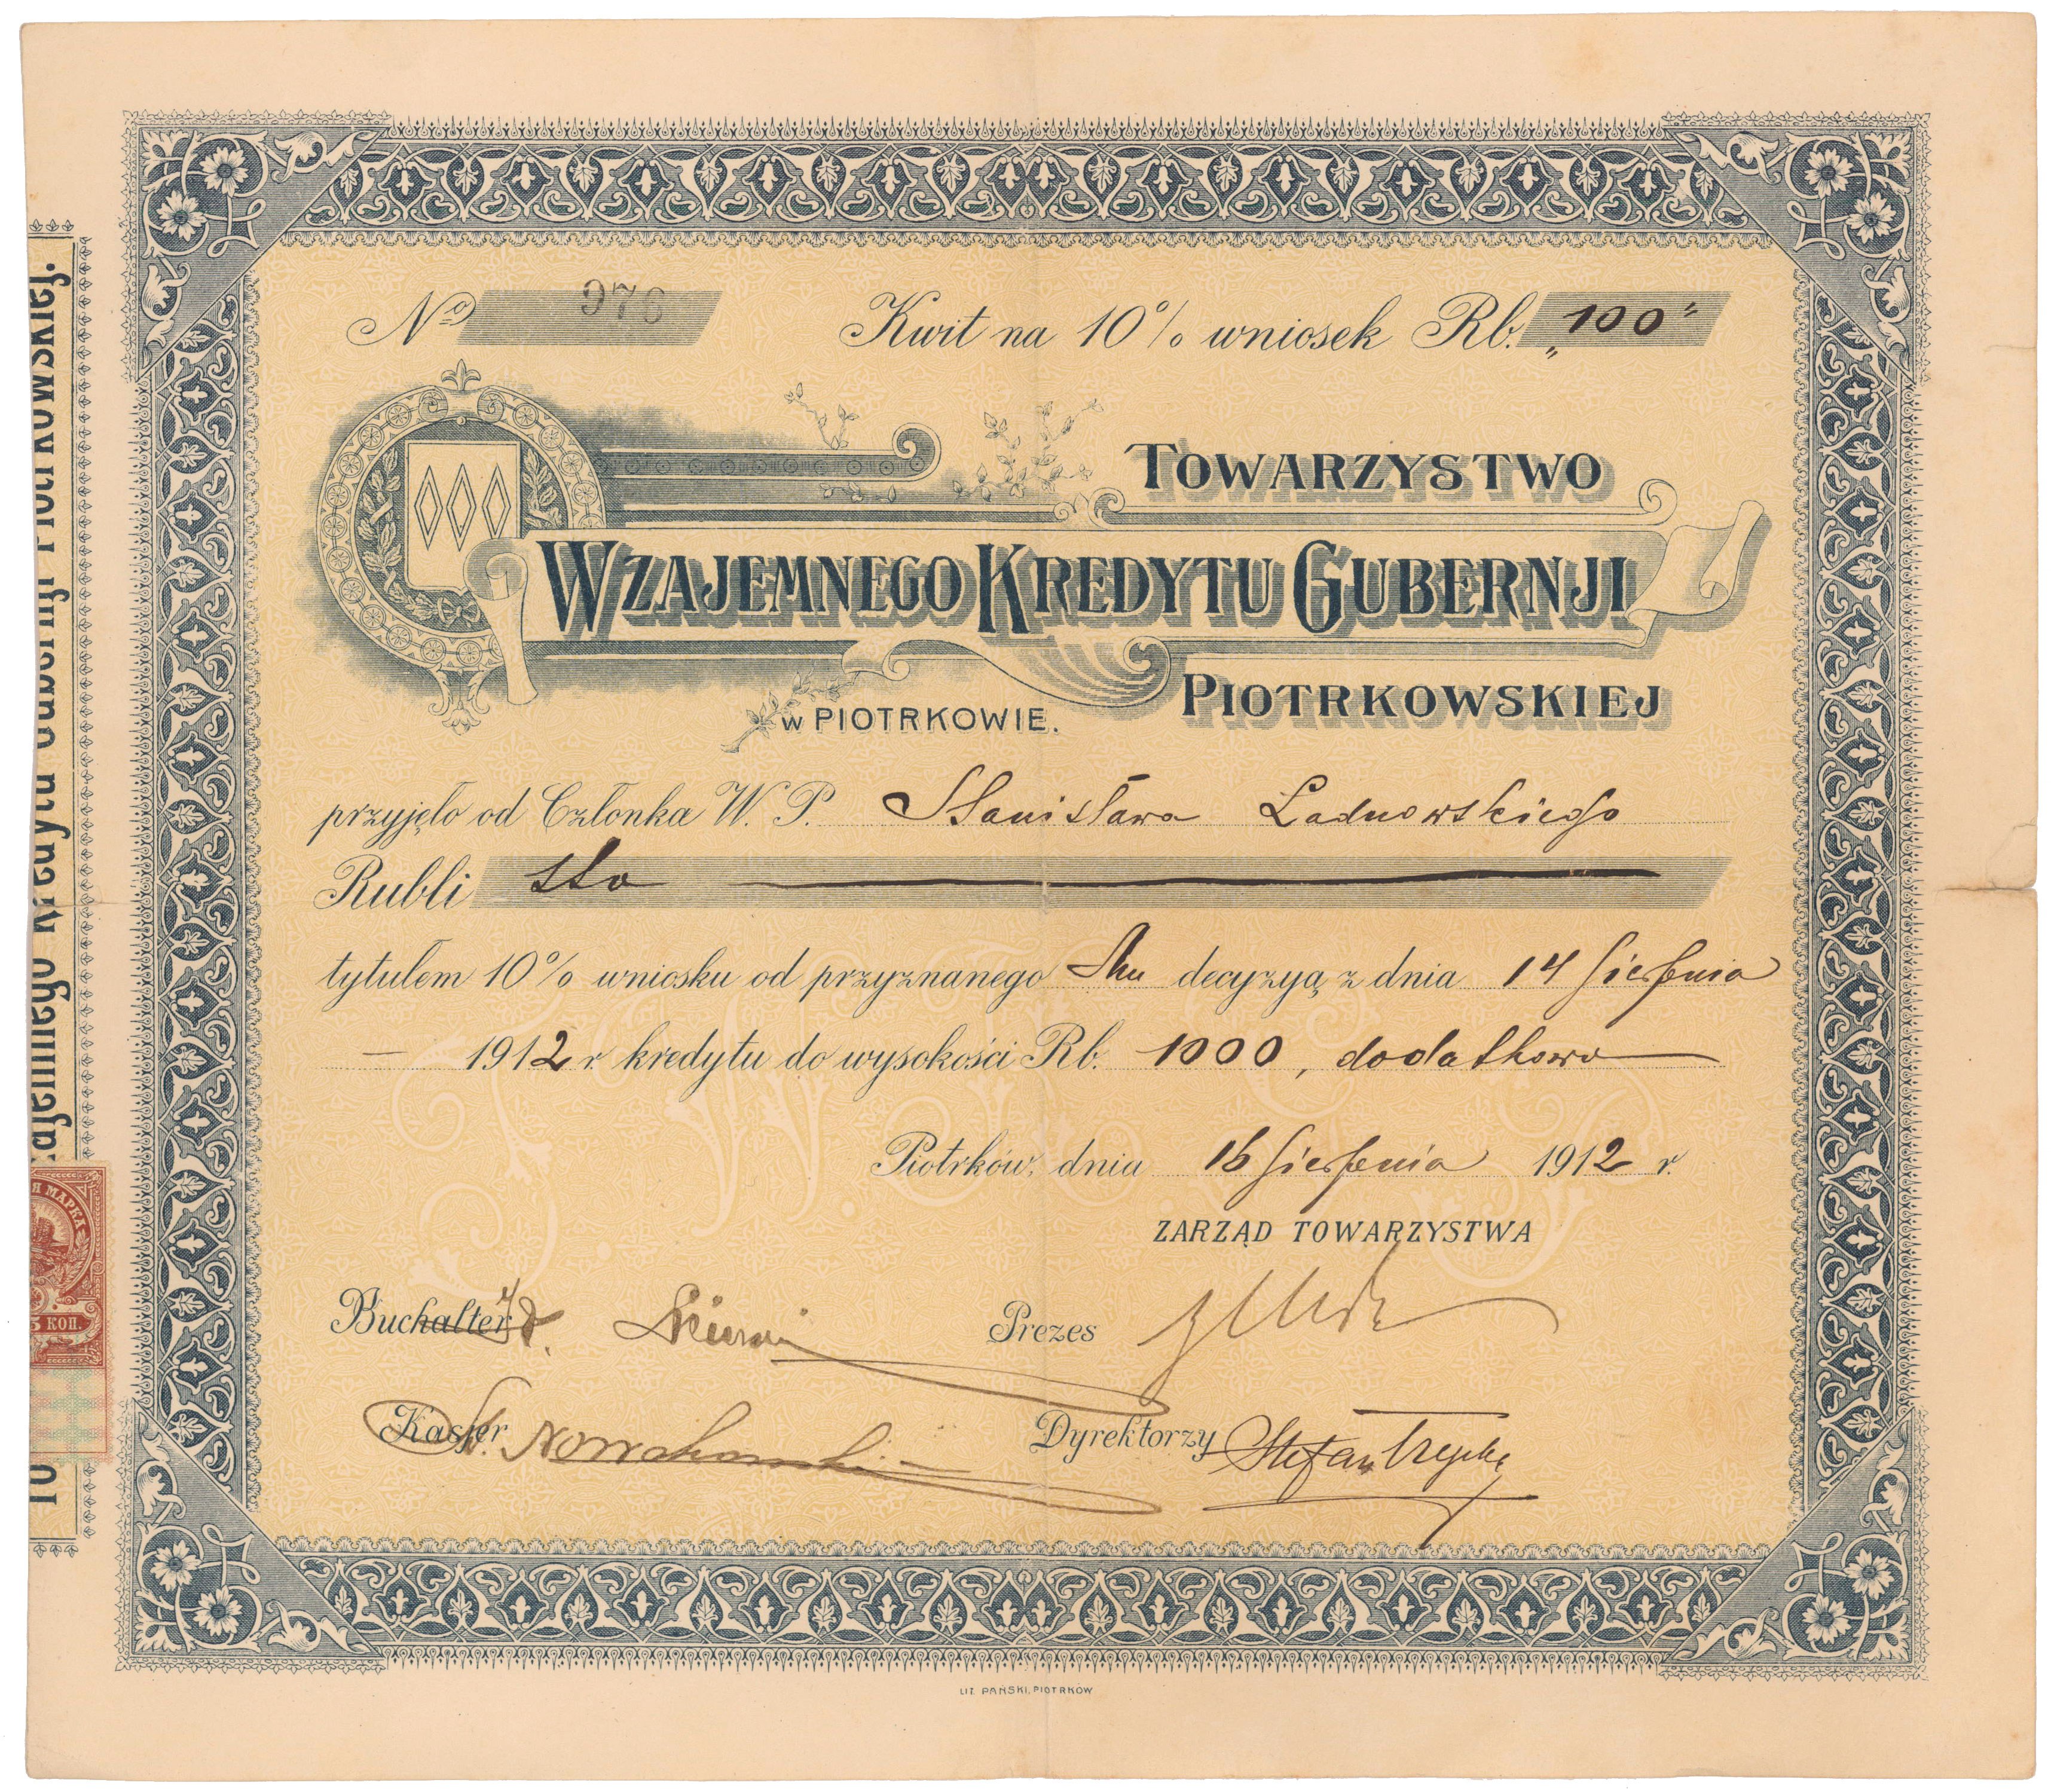 No 976 Kwit na 10% wniosek Rb. „100"
TOWARZYSTWO
WZAJEMNEGO KREDYTU GUBERNJI
PIOTRKOWSKIEJ
w PIOTRKOWIE.
przyjęło od Członka W. P. Stanisława Ladnowskiego
Rubli sto
tytułem 10% wniosku od przyznanego Mu decyzyą z dnia 14 Sierpnia
— 1912 r. kredytu do wysokości Rb. 1000, dodatkowo
Piotrków, dnia 16 Sierpnia 1912 r.
ZARZĄD TOWARZYSTWA
Buchalter Prezes
Kasjer St. Nowakowski Dyrektorzy Stefan
LIT. PAŃSKI, PIOTRKÓW
T.W.K.G.P.
zajemnego Kredytu Gubernji Piotrkowskiej.
Я МАРКА
5 КОП.